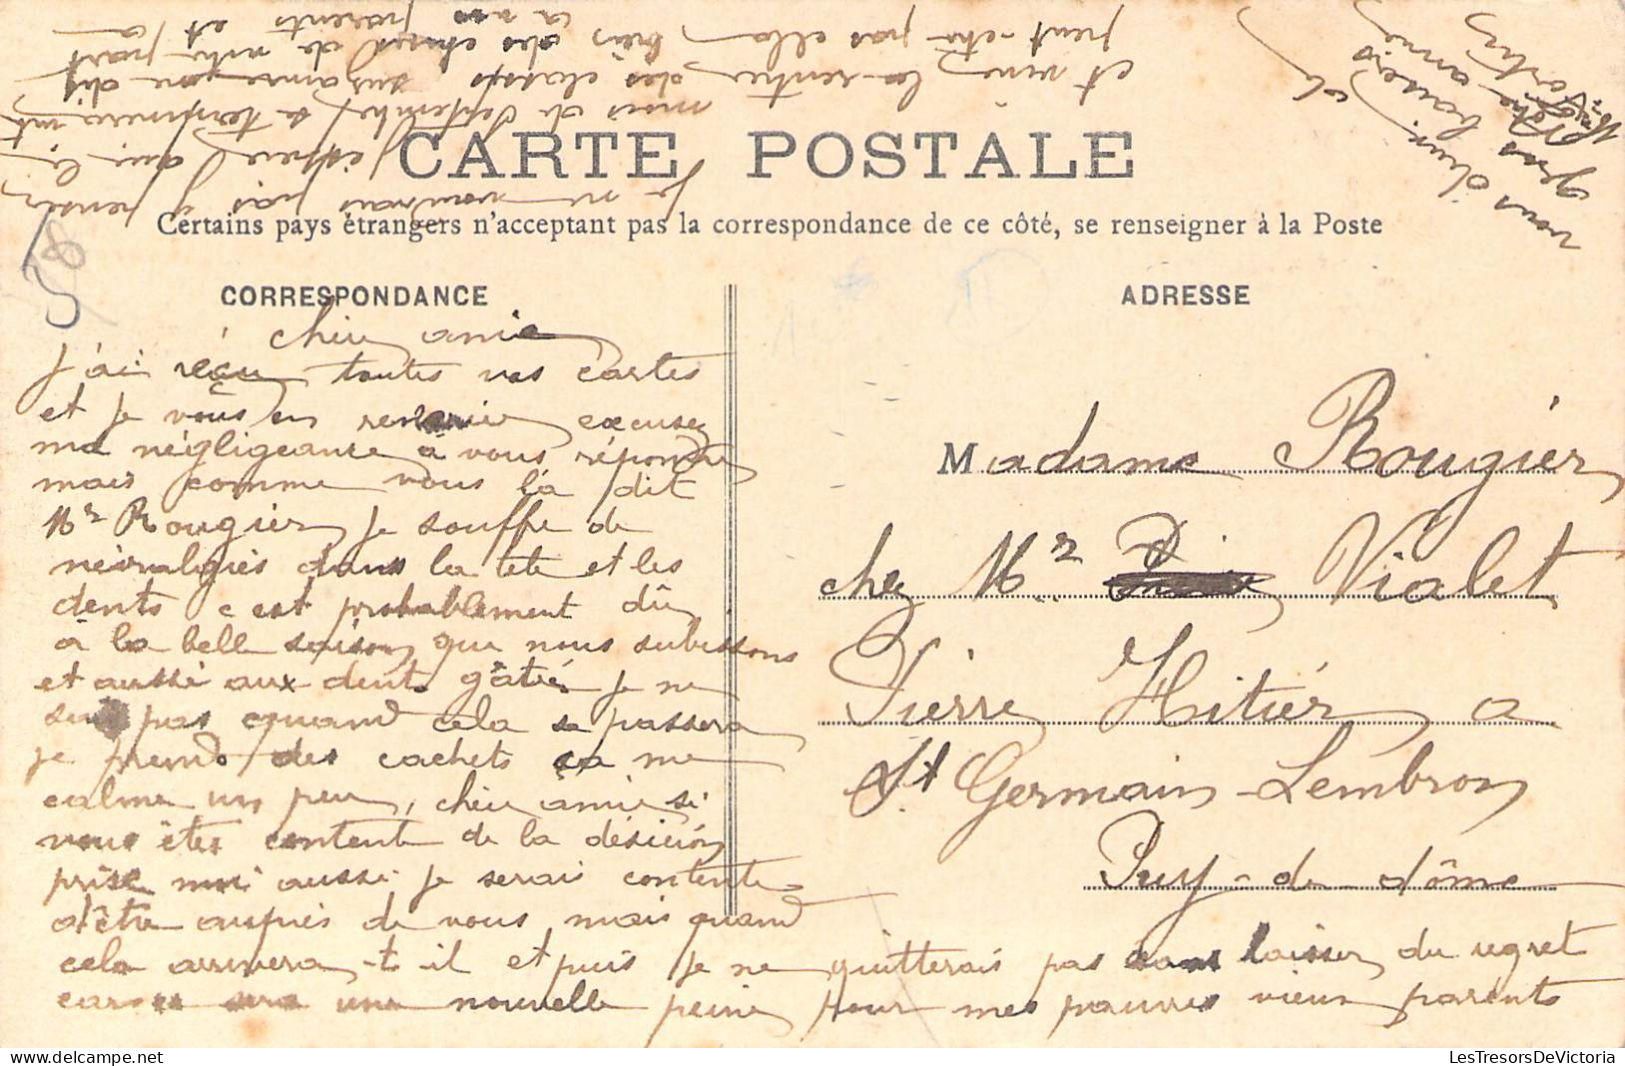 CARTE POSTALE
Certains pays étrangers n'acceptent pas la correspondance de ce côté, se renseigner à la Poste
CORRESPONDANCE
chèr amie
j'ai réçu toutes vos cartes
et je vous en remercie excusez
ma négligeance a vous répondre
mais comme vous l'a dit
Mr Rougier je souffre de
néuralgies dans la tete et les
dents c est probablement dû
a la bell saison que nous subissons
et aussi aux dents gâtés je ne
suis pas quand cela se passera
je prend des cachets ça me
calme un peu, chèr amie si
vous êtes contente de la désición
prise moi aussi je serais contente
d'être auprès de vous mais quand
cela arrivera-t-il et puis je ne quitterais pas sans laisser du regret
car ce sera une nouvelle peine pour mes pauvres vieux parents
ADRESSE
Madame Rougier
chez Mr Vialet
Pierre Hitiér a
St Germain-Lembron
Puy-de-dôme
je ne voudrais pas y penser
j'espère qui le
mois de septembre se terminera
et vive la rentrée des classes Suzanne dit
peut-etre pas cela, bien des choses de notre part
a vos parents et
vous chèr
gros baisers
Votre amie
LesTresorsDeVictoria